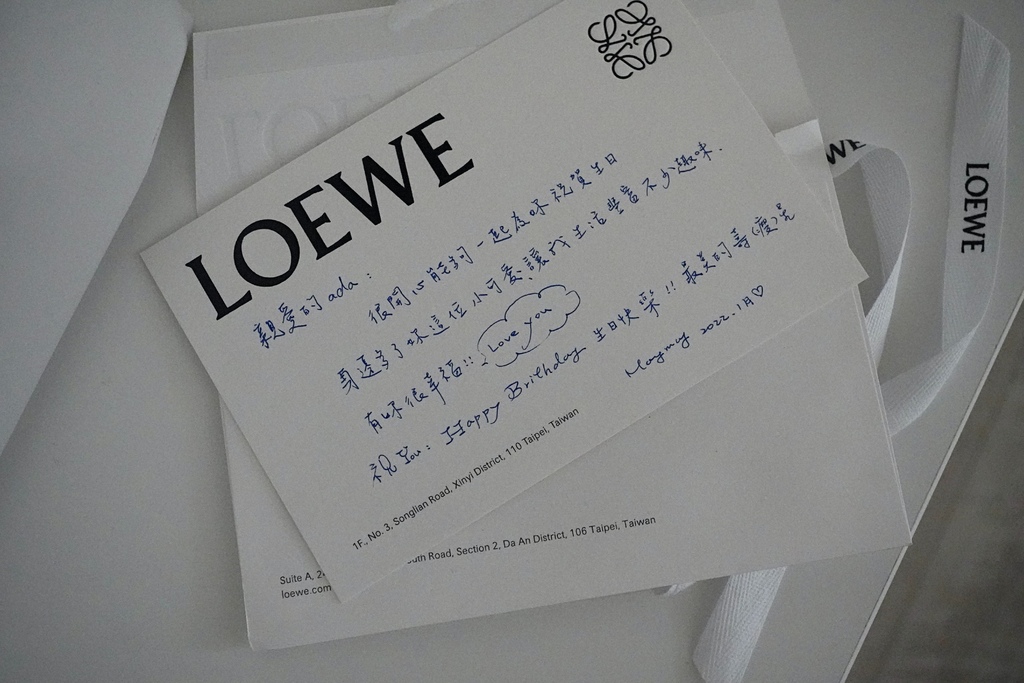 LOEWE
親愛的 ada：
很開心能夠一起為妳祝賀生日
身邊多了妳這位小可愛讓我生活豐富不少趣味.
有妳很幸福!! Love you
祝 You： Happy Brithday 生日快樂!! 最美的壽
Maymay 2022.1月♡
1F., No. 3, Songlian Road, Xinyi District, 110 Taipei, Taiwan
LOEWE
Suite A, 2
uth Road, Section 2, Da An District, 106 Taipei, Taiwan
loewe.com
WE
LOEWE